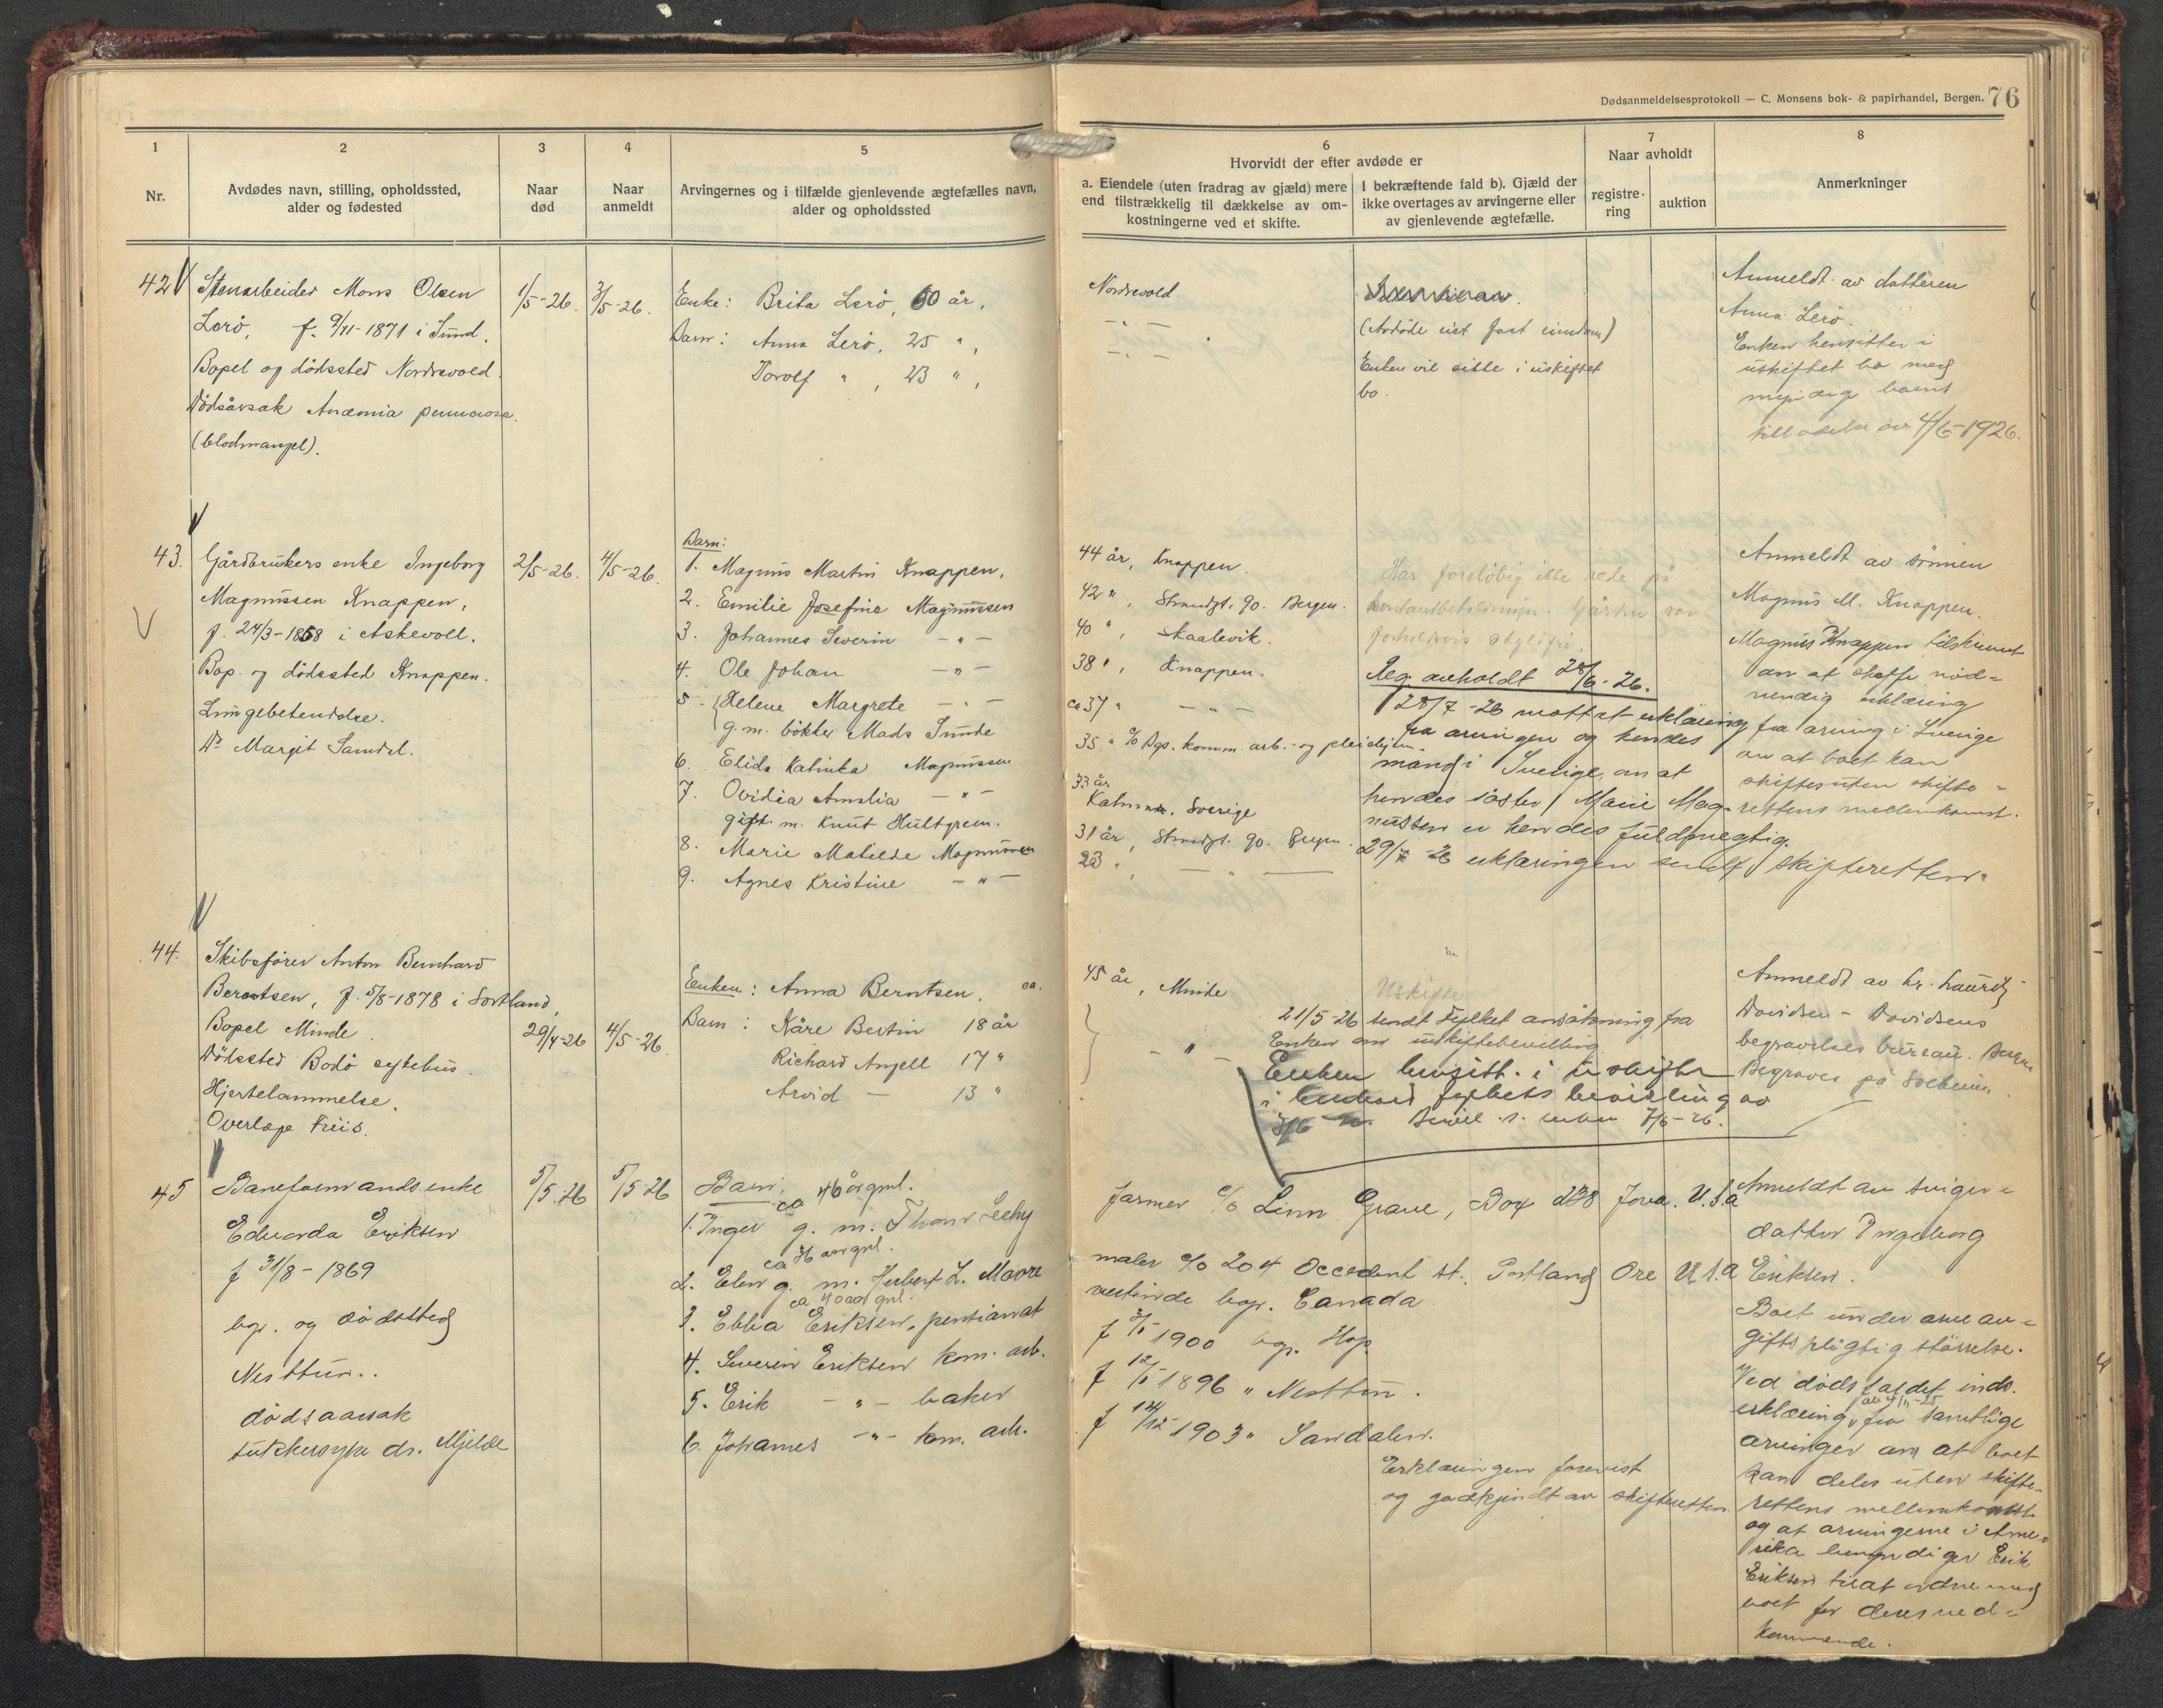 Dødsanmeldelsesprotokoll — C. Monsens bok- & papirhandel, Bergen. 76
1
2
3
4
5
6
7
8
Nr.
Avdødes navn, stilling, opholdssted,
alder og fødested
Naar
død
Naar
anmeldt
Arvingernes og i tilfælde gjenlevende ægtefælles navn,
alder og opholdssted
Hvorvidt der efter avdøde er
a. Eiendele (uten fradrag av gjæld) mere
end tilstrækkelig til dækkelse av om-
kostningerne ved et skifte.
I bekræftende fald b). Gjæld der
ikke overtages av arvingerne eller
av gjenlevende ægtefælle.
Naar avholdt
registre-
ring
auktion
Anmerkninger
42
Stenarbeider Mons Olsen
Lerö, f. 9/11-1871 i Sund.
Bopel og dödssted Nordrevold.
Dödsårsak Anæmia
(blodmangel).
1/5-26.
3/5-26.
Enke: Brita Lerö, 60 år,
Barn: Anna Lerö, 25 ",
Torolf ", 23 ",
Nordrevold.
(Avdöde eiet fast eiendom)
Enken vil sitte i uskiftet
bo.
Anmeldt av datteren
Anna Lerö.
Enken hensitter i
uskiftet bo med
myndige barns
tilladelse av 4/6-1926.
43.
Gårdbrukers enke Ingeborg
Magnussen Knappen,
f. 24/3-1858 i Askevoll.
Bop. og dödssted Knappen.
Lungebetendelse.
Dr Margit Sandal.
2/5-26.
4/5-26.
Barn:
1. Magnus Martin Knappen,
2. Emilie Josefine Magnussen
3. Johannes Severin - " -
4. Ole Johan - " -
5. Helene Margrete - " -
g.m. bökker Mads Sunde
6. Elida Katinka Magnussen
7. Ovidia Amalia - " -
gift m. Knut Hultgren.
8. Marie Matilde Magnussen
9. Agnes Kristine - " -
44 år, Knappen.
42 ", Strandgt. 90. Bergen.
40 ", Skaalevik.
38 ", Knappen.
ca 37 " - " -
35 " c/o Bgs. komm. arb.- og pleiehjem.
33 år
Kalmar, Sverige
31 år, Strandgt. 90. Bergen.
23 ", - " -
Har foreløbig ikke rede på
kontantbeholdningen. Gården var
forholdsvis skyldfri.
Reg. avholdt 28/6-26.
28/7-26 mottat erklæring
fra arvingen og hendes
mand i Sverige, om at
hendes søster Marie Mag-
nussen er hendes fuldmegtig.
29/7-26 erklæringen sendt skifteretten.
Anmeldt av sönnen
Magnus M. Knappen.
Magnus Knappen tilskrevet
om at skaffe nød-
vendig erklæring
fra arving i Sverige
om at boet kan
skiftes uten skifte-
rettens mellemkomst.
44.
Skibsförer Anton Bernhard
Berntsen, f. 5/8-1878 i Sortland,
Bopel Minde.
Dödssted Bodö sykehus.
Hjertelammelse.
Overlæge Friis.
29/4-26
4/5-26.
Enken: Anna Berntsen, ca.
Barn: Kåre Bertin 18 år
Richard Angell 17 "
Arvid - 13 "
45 år, Minde
- " -
Uskifte
21/5-26 sendt Fylket ansökning fra
Enken om uskiftebevilling
Enken hensitt. i uskifte
i henhold fylkets bevilling av
Bevill. s. enken 7/6-26.
Anmeldt av hr. Lauritz
Davidsen - Davidsens
begravelses bureau. Bergen
Begraves på Solheim
45
Baneformands enke
Edvarda Eriksen
f 31/8-1869
bop. og dödssted
Nesttun..
dödsaarsak
sukkersyke dr. Mjelde
5/5-26
5/5-26
Barn:
ca 46 år gml.
1. Inger g. m. Thom
ca 36 aar gml.
2. Elen g. m. Herbert L. Moore
ca 40 aar gml.
3. Ebba Eriksen, pensianat
4. Severin Eriksen kom. arb.
5. Erik - " - baker
6. Johannes - " - kom. arb.
farmer c/o Linn Grave, Box Jova. U.S.a
maler c/o 204 Occedent st. Portland Ore U.S.a
vertinde bop. Canada
1900 bop. Hop.
1896 " Nesttun.
f 14/12 1903 " Sandalen.
Erklæringen forevist
og godkjendt av skifteretten.
Anmeldt av sviger-
datter Ingeborg
Eriksen.
Boet under arveav-
giftspligtig störrelse.
Ved dödsfaldet inds.
erklæring fra samtlige
arvinger om at boet
kan deles uten skifte-
rettens mellemkomst
og at arvingerne i Ame-
rika bemyndiger Erik
Eriksen til at ordne med
boet for deres ved-
kommende.